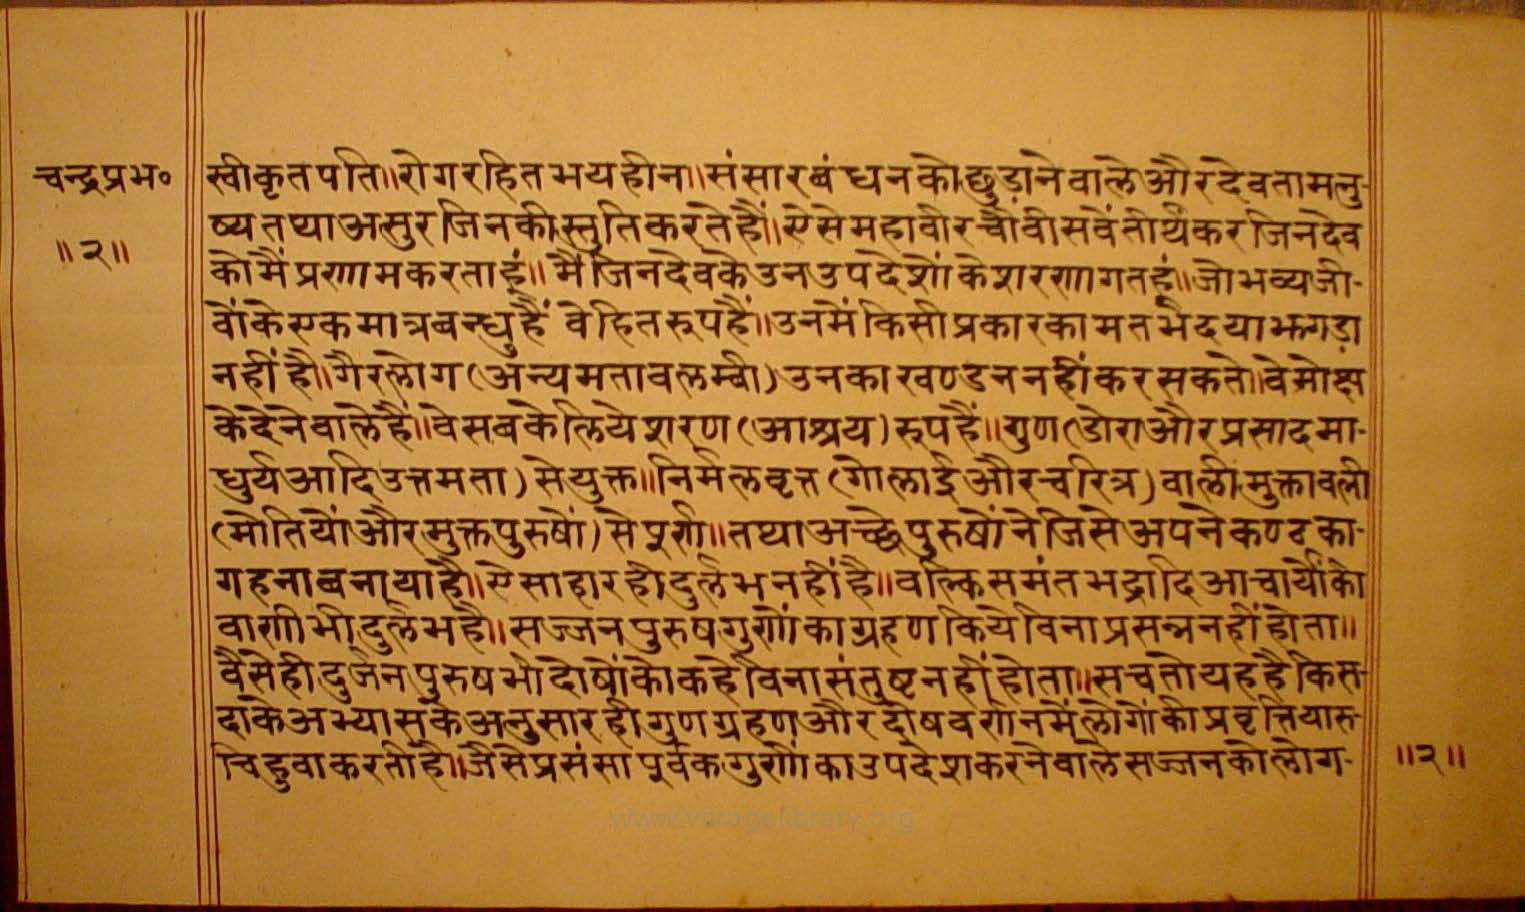 चन्द्रप्रभ०
॥२॥
स्वीकृतपति॥रोगरहितभयहीन॥संसारबंधनकोछुड़ानेवालेऔरदेवतामनु-
ष्यतथाअसुरजिनकीस्तुतिकरतेहैं॥ऐसेमहावीरचौवीसवेंतीर्थंकरजिनदेव
कोमैंप्रणामकरताहूं॥मैंजिनदेवकेउनउपदेशोंकेशरणागतहूं॥जोभव्यजी-
वोंकेएकमात्रबन्धुहैं वेहितरूपहैं॥उनमेंकिसीप्रकारकामतभेदयाझगड़ा
नहींहै॥गैरलोग(अन्यमतावलम्बी)उनकाखण्डननहींकरसकते॥वेमोक्ष
केदेनेवालेहैं॥वेसबकेलियेशरण(आश्रय)रूपहैं॥गुण(डोराऔरप्रसादमा-
धुर्यआदिउत्तमता)सेयुक्त॥निर्मलवृत्त(गोलाईऔरचरित्र)वालीमुक्तावली
(मोतियोंऔरमुक्तपुरुषों)सेपूर्ण॥तथाअच्छेपुरुषोंनेजिसेअपनेकण्ठका-
गहनाबनायाहै॥ऐसाहारहीदुर्लभनहींहै॥वल्किसमंतभद्रादिआचार्योंकी
वाणीभीदुर्लभहै॥सज्जनपुरुषगुणोंकाग्रहणकियेविनाप्रसन्ननहींहोता॥
वैसेहीदुर्जनपुरुषभीदोषोंकोकहेविनासंतुष्टनहींहोता॥सचतोयहहैकिस-
दाकेअभ्यासकेअनुसारहीगुणग्रहणऔरदोषवर्णनमेंलोगोंकीप्रवृत्तियारु-
चिहुवाकरतीहै॥जैसेप्रसंसापूर्वकगुणोंकाउपदेशकरनेवालेसज्जनकोलोग-
॥२॥
www.vitragelibrary.org